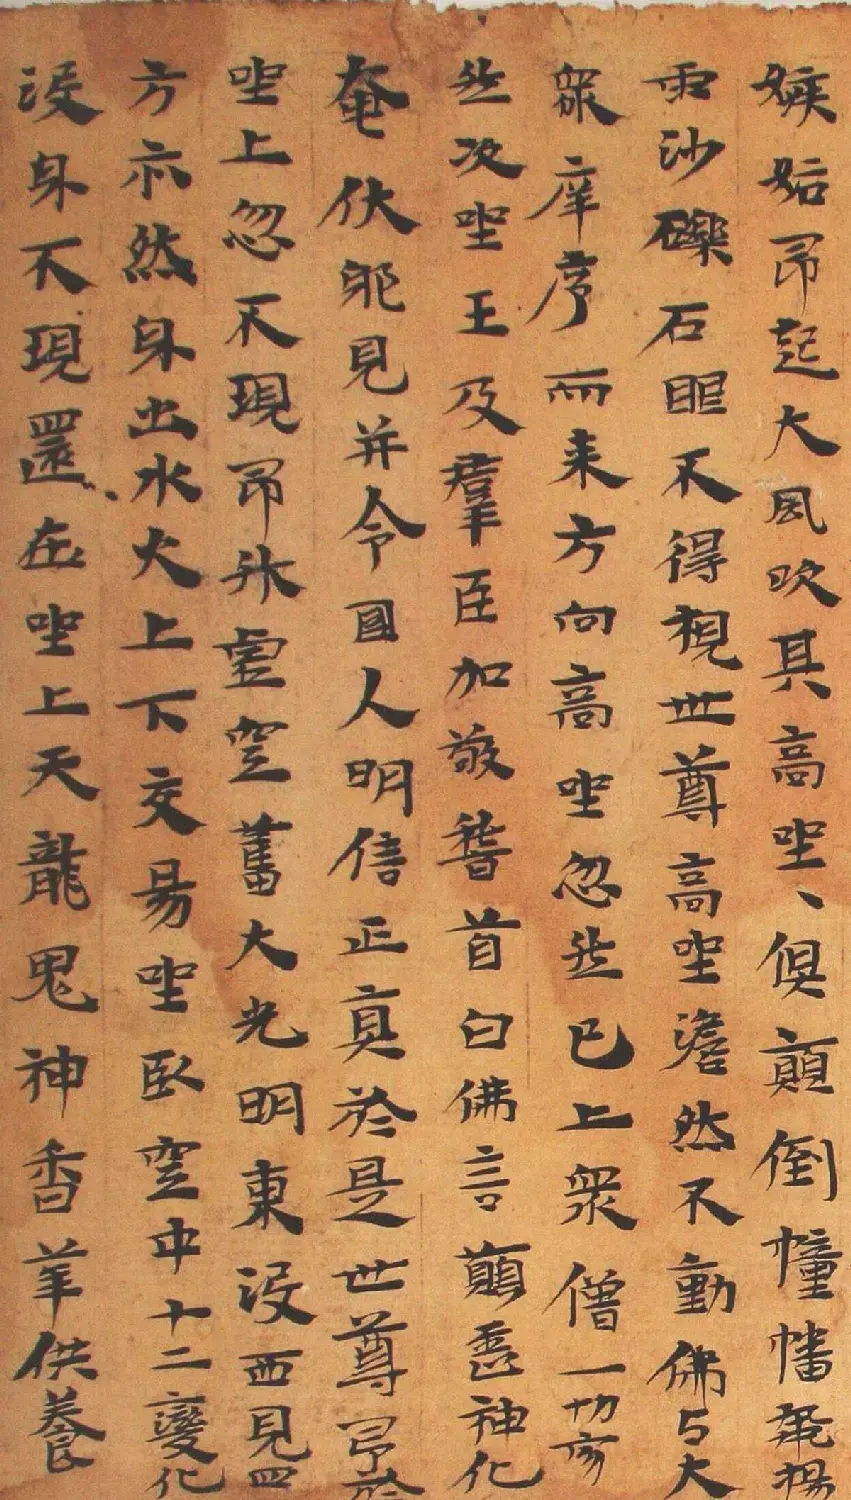 嫉妬即起大風吹其高坐、俱顛倒幢幡飛揚
雨沙礫石眼不得視世尊高坐澹然不動佛与大
眾庠序而来方向高坐忽然已上眾僧一切亦
然次坐王及羣臣加敬稽首白佛言願垂神化
奄伏邪見并令國人明信正真於是世尊即於
坐上忽不現即升虛空奮大光明東没西見四
方亦然身出水火上下交易坐臥空中十二變化
没身不現還在坐上天龍鬼神香華供養